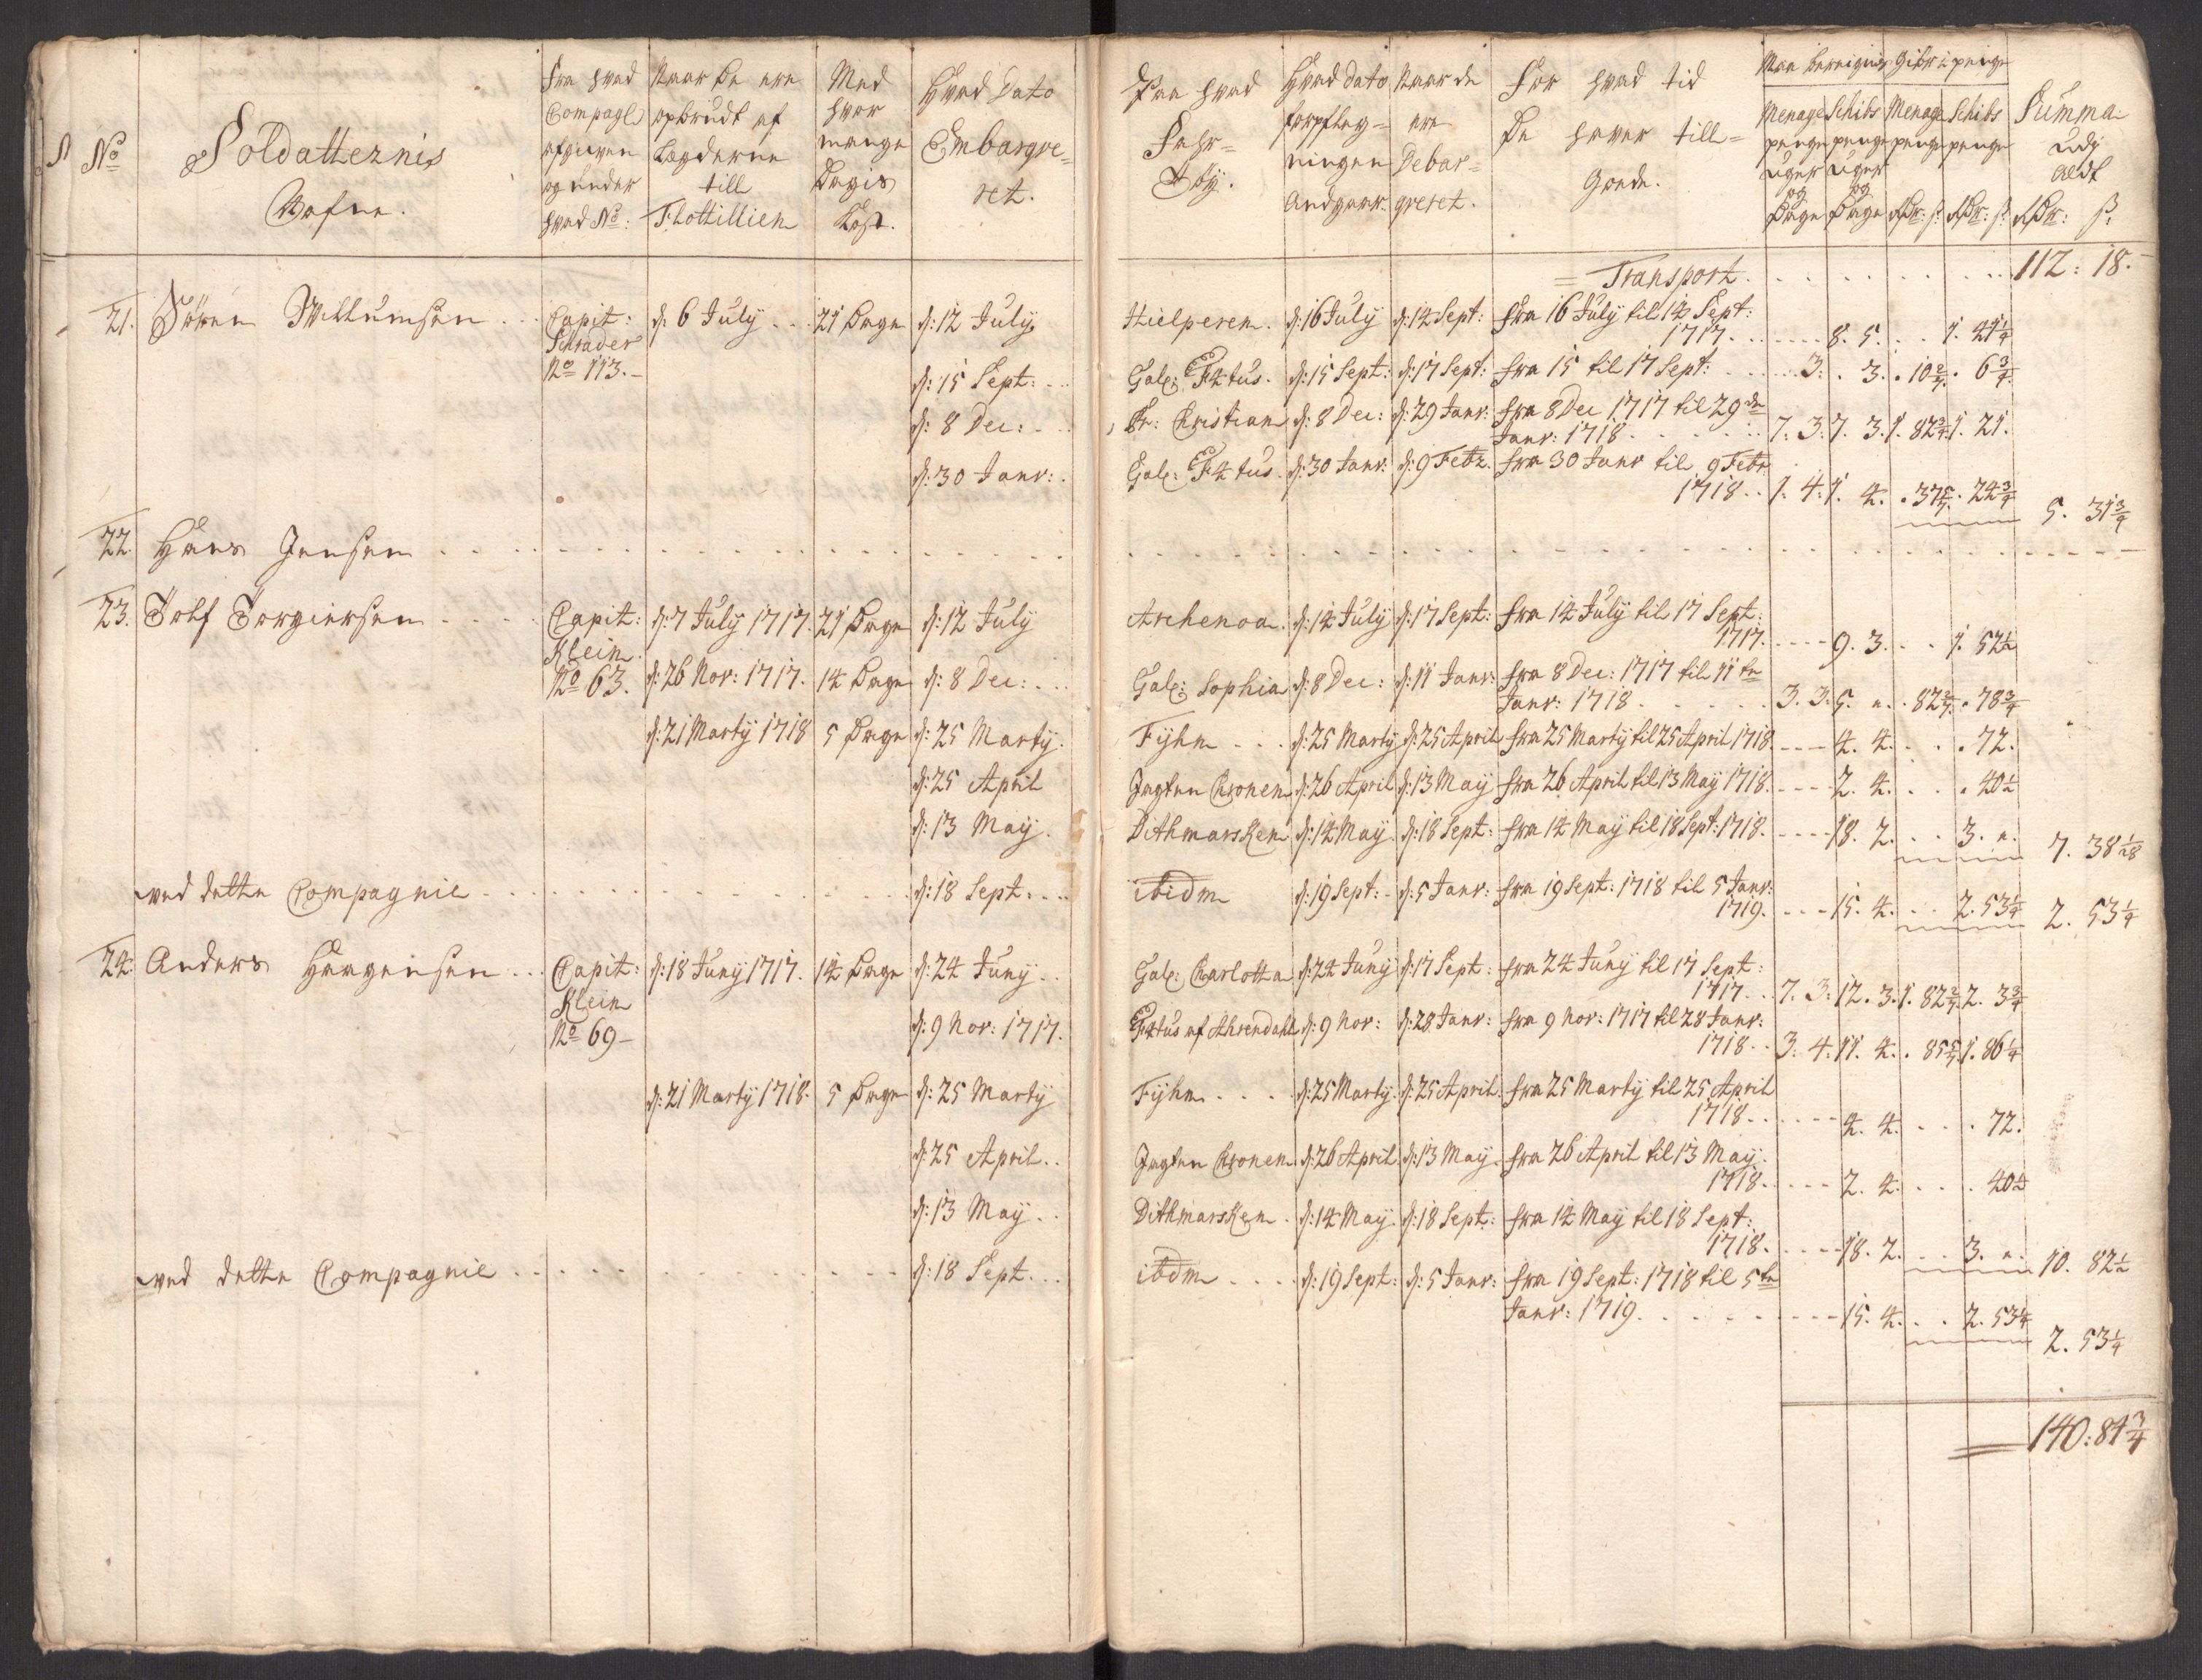 No
Soldatternis
Nafne.
Fra hvad
Compagl
afgangen
og under
hvad No:
Naar De ere
opbrudt af
Lægderne
till
Flottillien
Med
hvor
mange
Dagis
Kost.
Hvad Dato
Embarqve=
ret.
Paa hvad
Fahr=
Tøy.
Hvad dato
forpfleg=
ningen
Andgaar.
Naar de
ere
Debar=
qveret.
For hvad tid
De haver till=
Goede.
Menage penge Uger og Dage
Schibs penge Uger og Dage
Menage penge Rdr: ß:
Schibs penge Rdr: ß:
Summa
Udj
aldt
Rdr: ß:
= Transport. . . . 112: 18.
21. Sören Willumsen . . Capit: Schrader No 113.- d: 6 July . . 21 Dage d: 12 July
Hielperen. d: 16 July d: 14 Sept: fra 16 July til 14 Sept:
1717. . . 8. 5. . . 1. 41 1/4
d: 15 Sept: . . Gal: d: 15 Sept: d: 17 Sept: fra 15 til 17 Sept: . . 3. . 3. . 10 2/7. . 6 3/4.
d: 8 Dec: . . Pr: Christian d: 8 Dec: d: 29 Janr: fra 8 Dec 1717 til 29de
Janr: 1718 . . . 7. 3. 7. 3. 1. 82 2/7 1. 21.
d: 30 Janr: . Gal: d: 30 Janr: d: 9 Febr. fra 30 Janr til 9 Febr
1718 . . 1. 4. 1. 4. . 37 5/7. . 24 3/4 5. 31 3/4
22. Hans Jensen . . . .
23. Tolf Torgiersen . . . Capit: Klein No 63. d: 7 July 1717. 21 Dage d: 12 July
Archenoa. d: 14 July d: 17 Sept: fra 14 July til 17 Sept:
1717. . . 9. 3. . . 1. 52 1/2
d: 26 Nov: 1717. 14 Dage d: 8 Dec: . . Gal: Sophia d: 8 Dec: d: 11 Janr: fra 8 Dec: 1717 til 11te
Janr: 1718 . . . 3. 3. 5. ". . 82 2/7. . 78 3/4
d: 21 Marty 1718 5 Dage d: 25 Marty. Fyhn . . . d: 25 Marty d: 25 April fra 25 Marty til 25 April 1718 . . 4. 4. . . . 72.
d: 25 April Jagten Cronen d: 26 April d: 13 May fra 26 April til 13 May 1718. . . 2. 4. . . . 40 1/2
d: 13 May. Dithmarsken d: 14 May d: 18 Sept: fra 14 May til 18 Sept: 1718. . . 18. 2. . . 3. ". 7. 38 1/28
ved dette Compagnie . . . d: 18 Sept: . . ibidm d: 19 Sept: d: 5 Janr: fra 19 Sept: 1718 til 5 Janr:
1719. . . 15. 4. . . 2. 53 1/4 2. 53 1/4
24. Anders Haagensen . . Capit: Klein No 69- d: 18 Juny 1717. 14 Dage d: 24 Juny . .
Gal: Charlotta d: 24 Juny d: 17 Sept: fra 24 Juny til 17 Sept:
1717. . 7. 3. 12. 3. 1. 82 2/7. 2. 3 3/4
d: 9 Nov: 1717. af Ahrendahl d: 9 Nov: d: 28 Janr: fra 9 Nov: 1717 til 28 Janr:
1718 . . 3. 4. 11. 4. . 85 5/7. 1. 86 1/4
d: 21 Marty 1718. 5 Dage d: 25 Marty Fyhn . . . d: 25 Marty. d: 25 April. fra 25 Marty til 25 April
1718 . . . 4. 4. . . . 72.
d: 25 April . . Jagten Cronen d: 26 April d: 13 May fra 26 April til 13 May
1718. . . 2. 4. . . . 40 1/2
d: 13 May . . Dithmarsken . d: 14 May. d: 18 Sept: fra 14 May til 18 Sept:
1718. . . 18. 2. . . 3. ". 10. 82 1/2
ved dette Compagnie . . . d: 18 Sept. . . ibdm . . . d: 19 Sept: d: 5 Janr: fra 19 Sept: 1718 til 5te
Janr: 1719. . . . 15. 4. . . 2. 53 1/4
2. 53 1/4
140: 84 3/4